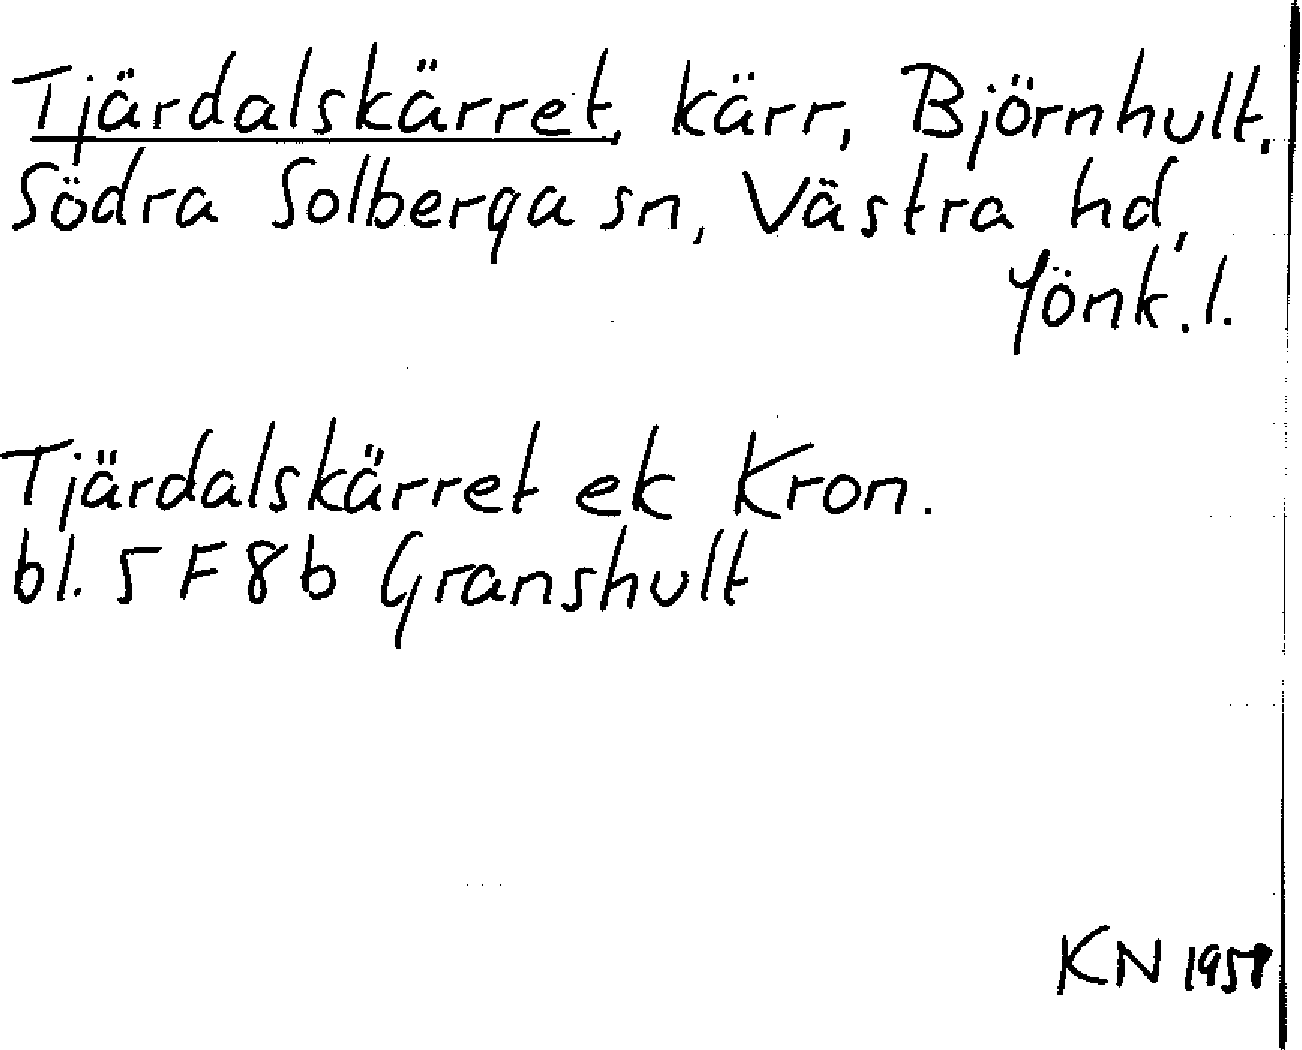 Tjärdalskärret, kärr, Björnhult,
Södra Solberga sn, Västra hd,
Jönk. l.
Tjärdalskärret ek Kron.
bl. 5 F 8 b Granshult
KN